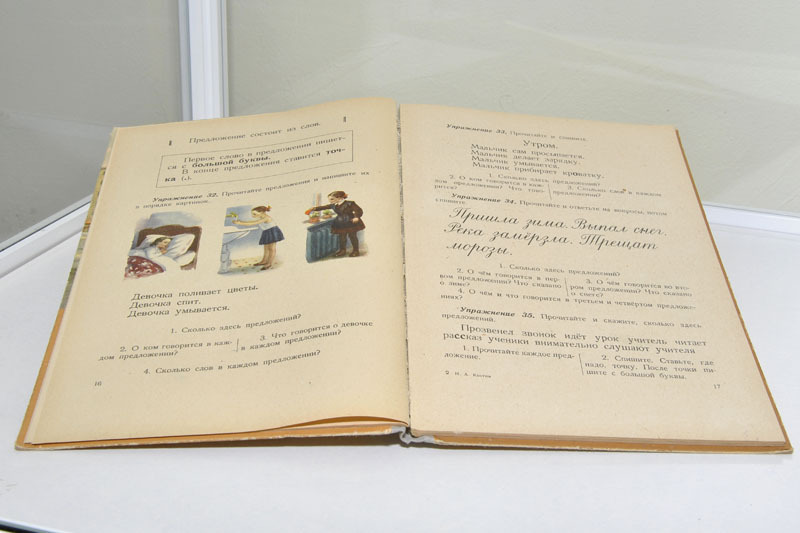 Предложение состоит из слов.
Первое слово в предложении пишет-
ся с большой буквы.
В конце предложения ставится точ-
ка (.).
Упражнение 32. Прочитайте предложения и напишите их
в порядке картинок.
Девочка поливает цветы.
Девочка спит.
Девочка умывается.
1. Сколько здесь предложений?
2. О ком говорится в каж-
дом предложении?
3. Что говорится о девочке
в каждом предложении?
4. Сколько слов в каждом предложении?
16
Упражнение 33. Прочитайте и спишите.
Утром.
Мальчик сам просыпается.
Мальчик делает зарядку.
Мальчик умывается.
Мальчик прибирает кроватку.
1. Сколько здесь предложений?
2. О ком говорится в каж-
дом предложении? Что гово-
рится?
3. Сколько слов в каждом
предложении?
Упражнение 34. Прочитайте и ответьте на вопросы, потом
спишите.
Пришла зима. Выпал снег.
Река замёрзла. Трещат
морозы.
1. Сколько здесь предложений?
2. О чём говорится в пер-
вом предложении? Что сказано
о зиме?
3. О чём говорится во вто-
ром предложении? Что сказано
о снеге?
4. О чём и что говорится в третьем и четвёртом предложе-
ниях?
Упражнение 35. Прочитайте и скажите, сколько здесь
предложений.
Прозвенел звонок идёт урок учитель читает
рассказ ученики внимательно слушают учителя
1. Прочитайте каждое пред-
ложение.
2. Спишите. Ставьте, где
надо, точку. После точки пи-
шите с большой буквы.
2 Н. А. Костин
17